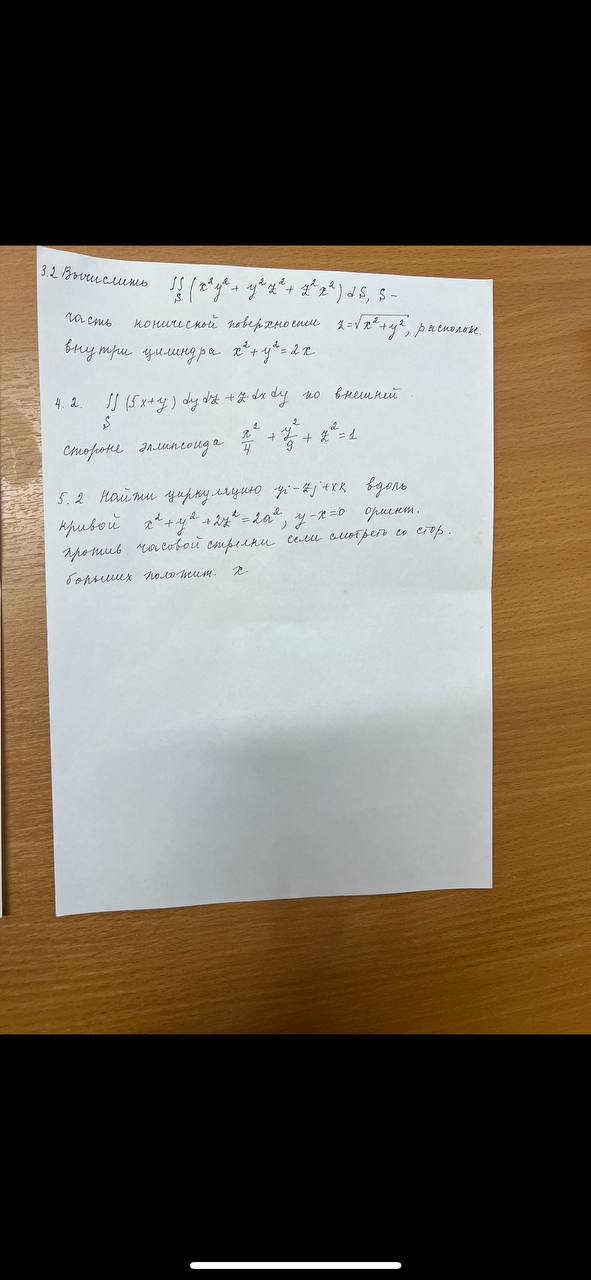 3.2 Вычислить ∬_S (x²y² + y²z² + z²x²) dS, S –
часть конической поверхности z=√(x²+y²), располож.
внутри цилиндра x²+y²=2x
4.2. ∬_S (5x+y) dydz + z dxdy по внешней
стороне эллипсоида x²/4 + y²/9 + z²=1
5.2 Найти циркуляцию yi – zj + xk вдоль
кривой x²+y²+2z²=2a², y–x=0 ориент.
против часовой стрелки если смотреть со стор.
больших положит. x